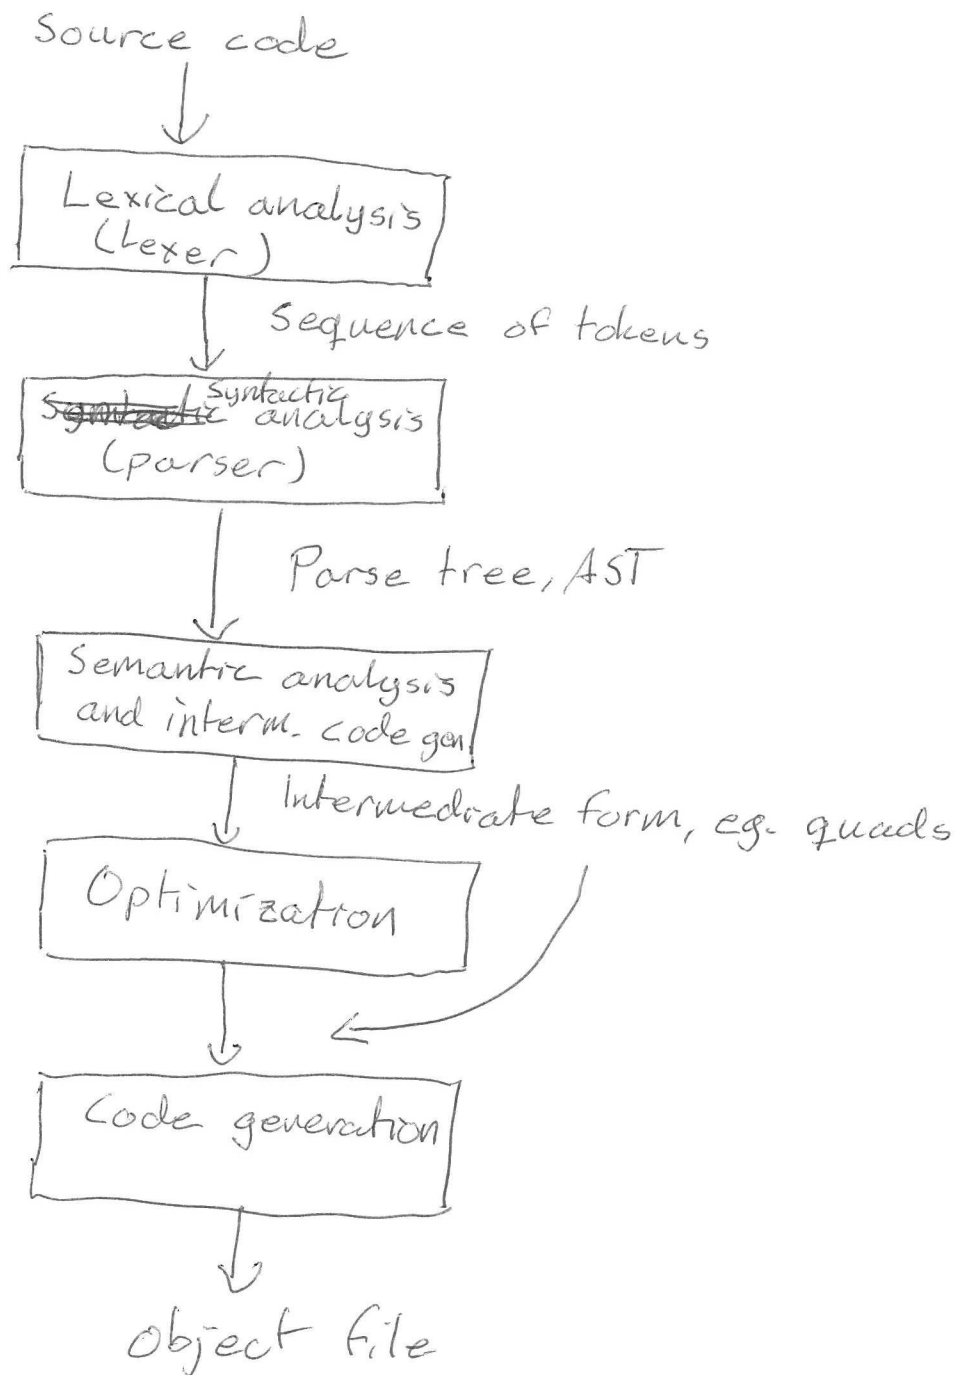 Source code
Lexical analysis
(Lexer)
Sequence of tokens
Syntactic
analysis
(parser)
Parse tree, AST
Semantic analysis
and interm. code gen.
Intermediate form, eg. quads
Optimization
Code generation
Object file